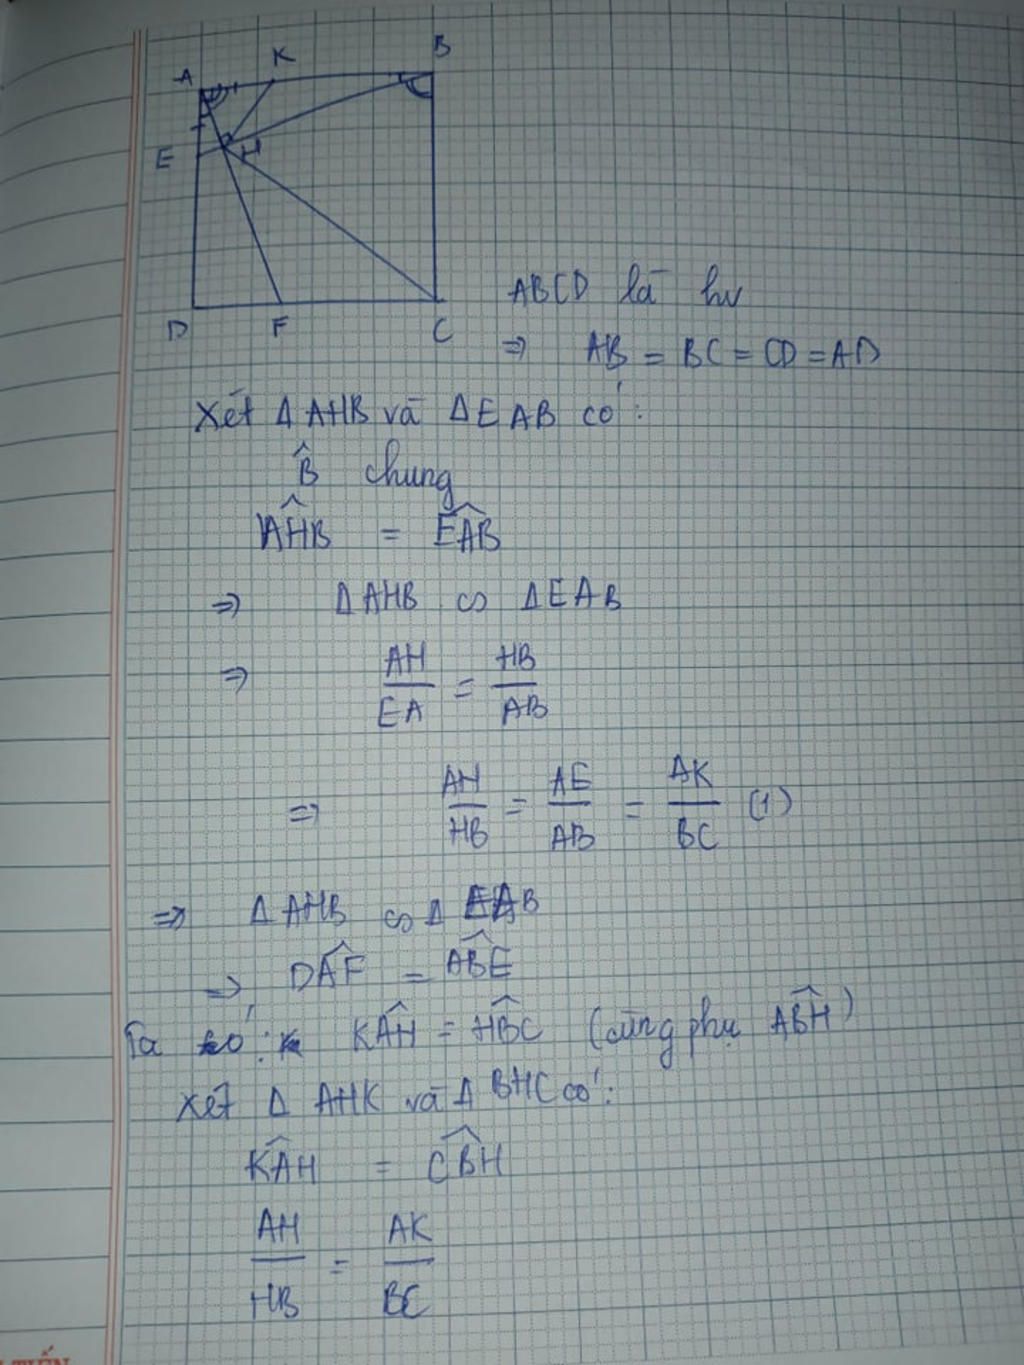 A K B
E H
D F C
ABCD là hv
⇒ AB = BC = CD = AD
Xét Δ AHB và Δ EAB có:
B̂ chung
AHB̂ = EAB̂
⇒ Δ AHB ∽ Δ EAB
⇒ AH/EA = HB/AB
⇒ AH/HB = AE/AB = AK/BC (1)
⇒ Δ AHB ∽ Δ EAB
⇒ DAF̂ = ABÊ
Ta có: KAĤ = HBĈ (cùng phụ ABĤ)
Xét Δ AHK và Δ BHC có:
KAĤ = CBĤ
AH/HB = AK/BC